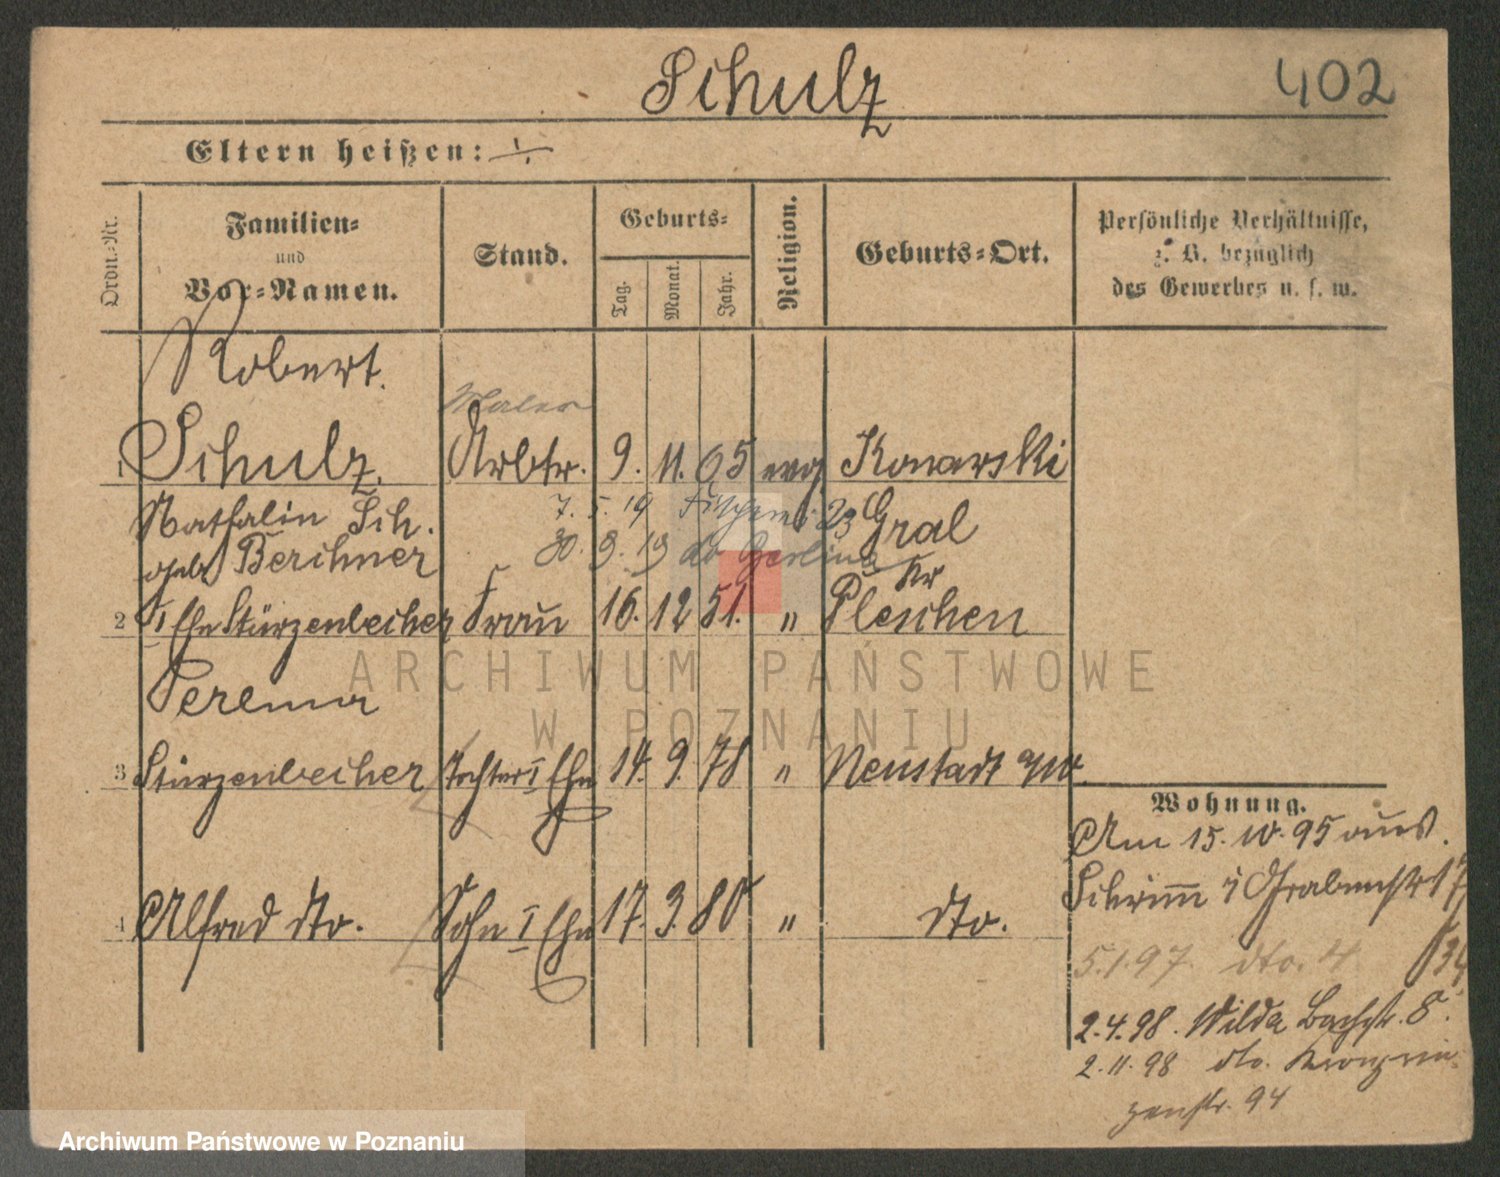 Schulz
402
Eltern heißen: ·/·
Ordn.-Nr.
Familien-
und
Vor-Namen.
Stand.
Geburts-
Tag.
Monat.
Jahr.
Religion.
Geburts-Ort.
Persönliche Verhältnisse,
z. B. bezüglich
des Gewerbes u. s. w.
Robert.
Maler
1 Schulz. Arbtr. 9. 11. 65 evg Konarski
Nathalin Sch. 7. 5. 19 23 Gral
geb Berchner 30. 9. 19 do Berlin Kr
2 I Ehe Stürzenbecher Frau 16. 12 51. " Pleschen
Serema
3 Stürzenbecher Tochter I Ehe 14. 9. 78 " Neustadt a/W.
Wohnung.
Am 15. 10. 95 aus
Schrimm i Grabenstr 17
4 Alfred dto. Sohn I Ehe 17. 3. 80 " dto.
5.1.97. dto. 4
2.4.98. Wilda Bachstr. 8.
2.11.98 dto. Kronprin
zenstr. 94
ARCHIWUM PAŃSTWOWE
W POZNANIU
Archiwum Państwowe w Poznaniu